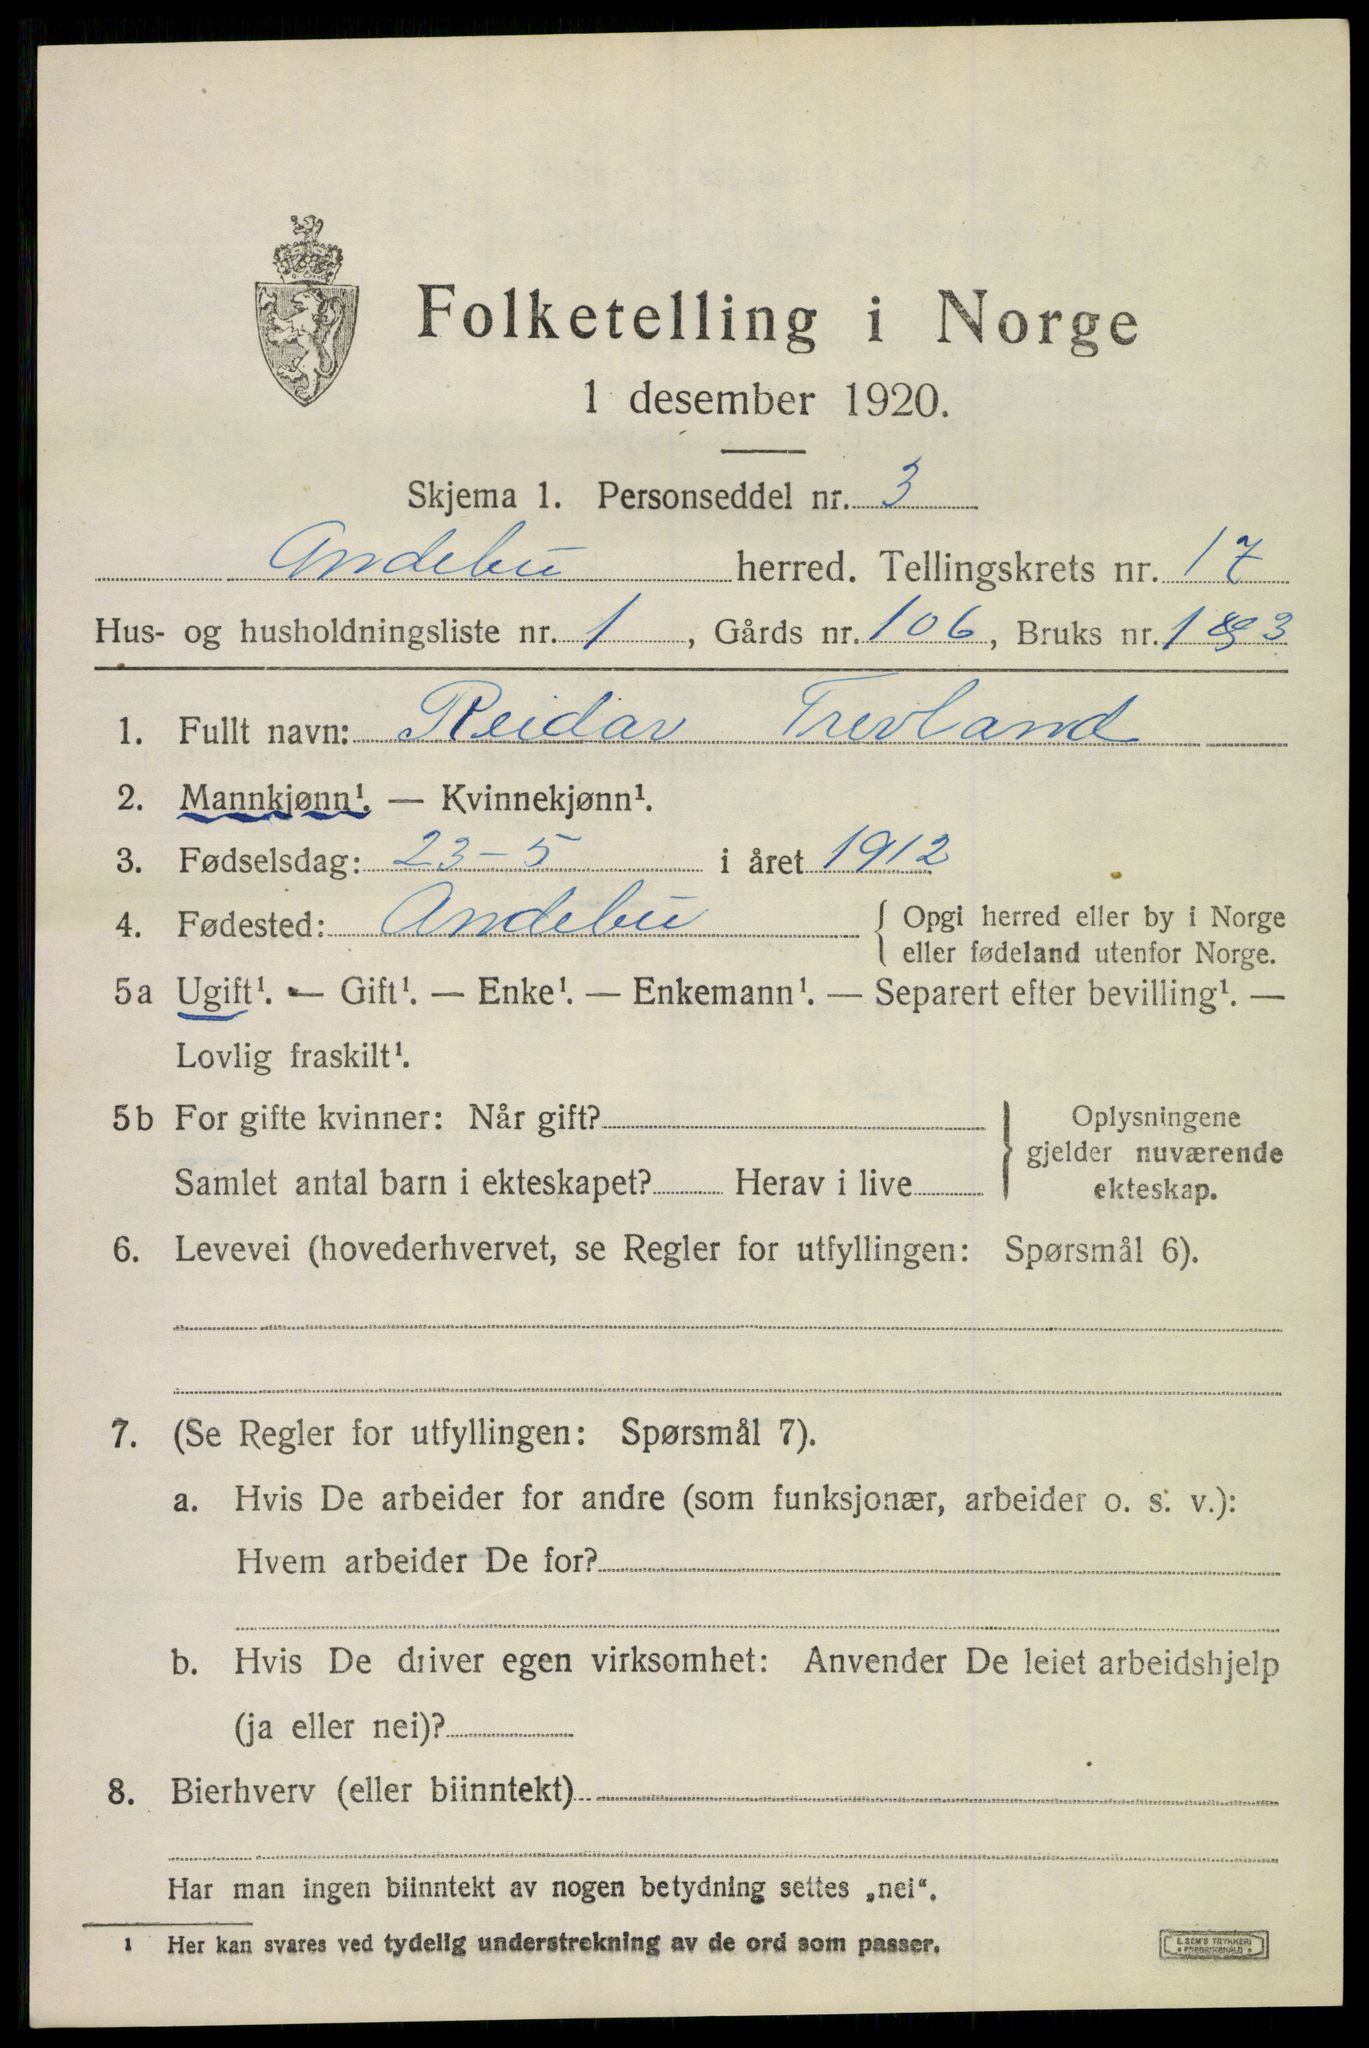 Folketelling i Norge
1 desember 1920.
Skjema 1. Personseddel nr. 3
Andebu herred. Tellingskrets nr. 17
Hus- og husholdningsliste nr. 1, Gårds nr. 106, Bruks nr. 1 & 3
1. Fullt navn: Reidar Trevland
2. Mannkjønn¹. — Kvinnekjønn¹.
3. Fødselsdag: 23-5 i året 1912
4. Fødested: Andebu { Opgi herred eller by i Norge
eller fødeland utenfor Norge.
5a Ugift¹. — Gift¹. — Enke¹. — Enkemann¹. — Separert efter bevilling¹. —
Lovlig fraskilt¹.
5b For gifte kvinner: Når gift? } Oplysningene
gjelder nuværende
Samlet antal barn i ekteskapet? Herav i live ekteskap.
6. Levevei (hovederhvervet, se Regler for utfyllingen: Spørsmål 6).
7. (Se Regler for utfyllingen: Spørsmål 7).
a. Hvis De arbeider for andre (som funksjonær, arbeider o. s. v.):
Hvem arbeider De for?
b. Hvis De driver egen virksomhet: Anvender De leiet arbeidshjelp
(ja eller nei)?
8. Bierhverv (eller biinntekt)
Har man ingen biinntekt av nogen betydning settes „nei“.
1 Her kan svares ved tydelig understrekning av de ord som passer.
E. SEM'S TRYKKERI
FREDRIKSHALD